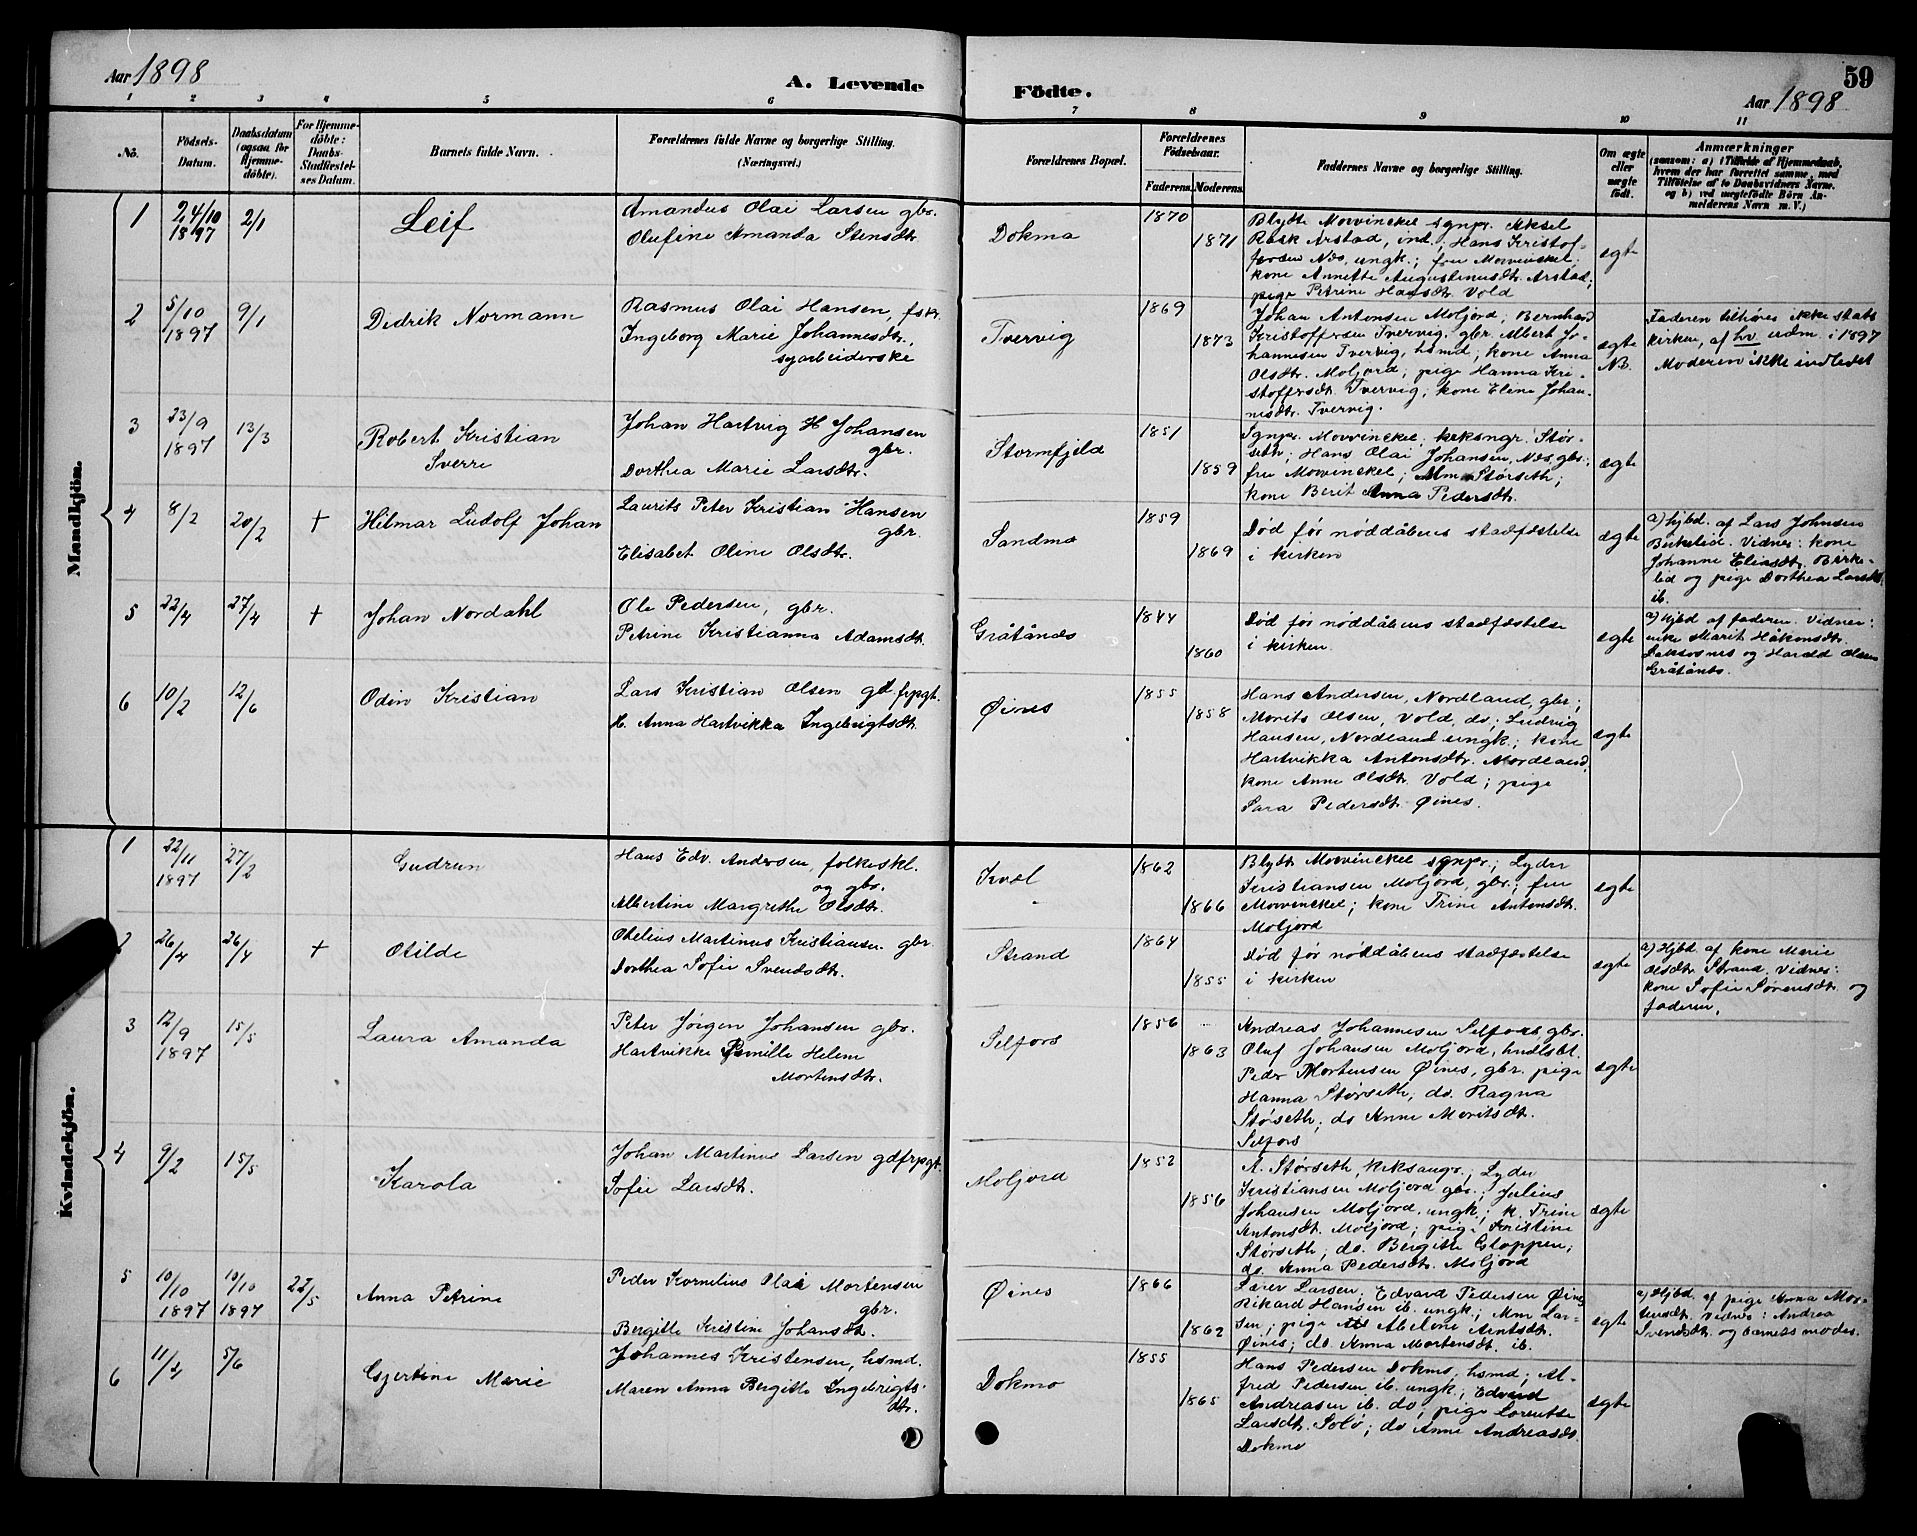 Aar 1898
A. Levende Födte.
59
Aar 1898
1 2 3 4 5 6 7 8 9 10 11
No.
Födsels-
Datum.
Daabsdatum
(ogsaa for
Hjemme-
döbte).
For Hjemme-
döbte:
Daabs-
Stadfæstel-
ses Datum.
Barnets fulde Navn.
Forældrenes fulde Navne og borgerlige Stilling.
(Næringsvei.)
Forældrenes Bopæl.
Forældrenes
Födselsaar.
Faderens. Moderens.
Faddernes Navne og borgerlige Stilling.
Om ægte
eller
uægte
født.
Anmærkninger
(saasom: a) i Tilfælde af Hjemmedaab,
hvem der har forrettet samme, med
Tilföielse af to Daabsvidners Navne,
og b) ved uægtefödte Börn An-
melderens Navn m. V.)
Mandkjön.
1
24/10
1897
2/1
Leif
Amandus Olai Larsen gbr.
Olufine Amanda Stensdtr.
Dokmo
1870
1871
Blydt Mowinckel sgnpr. Aksel
Rask Arstad, ind.; Hans Kristof-
fersen Nes, ungk.; fru Mowinckel;
kone Annette Augustinusdtr. Arstad;
pige Petrine Hansdtr. Vold
ægte
2
5/10
1897
9/1
Dedrik Normann
Rasmus Olai Hansen, fskr.
Ingeborg Marie Johannesdtr.,
syarbeiderske
Tvervig
1869
1873
Johan Antonsen Moljord; Bernhard
Kristoffersen Tvervig, gbr. Albert Jo-
hannesen Tvervig, hsmd; kone Anna
Olsdtr. Moljord; pige Hanna Kri-
stoffersdtr. Tvervig; kone Eline Johan-
nesdtr. Tvervig.
ægte
NB.
Faderen tilhører ikke stats
kirken, af hv udm. i 1897
Moderen ikke indledet
3
23/9
1897
13/3
Robert Kristian
Sverre
Johan Hartvig H Johansen
gbr.
Dorthea Marie Larsdtr.
Stormfjeld
1851
1859
Sgnpr. Mowinckel, kirksngr. Stør-
seth; Hans Olai Johansen, Nes, gbr.;
fru Mowinckel; Mm Størseth;
kone Berit Anna Pedersdtr.
ægte
4
8/2
20/2
+
Hilmar Ludolf Johan
Laurits Peter Kristian Hansen
gbr.
Elisabet Oline Olsdtr.
Sandmo
1859
1869
Død før nøddåbens stadfæstelse
i kirken
ægte
a) hjbd. af Lars Johnsen
Birkelid. Vidner: kone
Johanne Eliasdtr. Birke-
lid og pige Dorthea Larsdtr.
ib.
5
22/4
27/4
+
Johan Nordahl
Ole Pedersen, gbr.
Petrine Kristianna Adamsdtr.
Gråtånes
1844
1860
Død før nøddåbens stadfæstelse
i kirken.
ægte
a) Hjbd af faderen. Vidner:
enke Marit Håkonsdtr.
og Harald Olsen
Gråtånes.
6
10/2
12/6
Odin Kristian
Lars Kristian Olsen gd.frpgt.
H. Anna Hartvikka Ingebrigtsdtr.
Øines
1855
1858
Hans Andersen, Nordland, gbr.;
Morits Olsen, Vold, do; Ludvig
Hansen, Nordland ungk.; kone
Hartvikka Antonsdtr. Nordland;
kone Anne Olsdtr. Vold; pige
Sara Pedersdtr. Øines.
ægte
Kvindekjön.
1
22/11
1897
27/2
Gudrun
Hans Edv. Andersen, folkeskl.
og gbr.
Albertine Margrethe Olsdtr.
Kvæl
1862
1866
Blydt Mowinckel sgnpr.; Lyder
Kristiansen Moljord, gbr.; fru
Mowinckel; kone Trine Antonsdtr.
Moljord
ægte
2
26/4
26/4
+
Otilde
Otelius Martinus Kristiansen gbr
Dorthea Sofie Svendsdtr.
Strand
1864
1855
Død før nøddåbens stadfæstelse
i kirken
ægte
a) Hjbd. af kone Marie
Olsdtr. Strand. Vidner:
kone Sofie Sørensdtr. og
faderen.
3
12/9
1897
15/5
Laura Amanda
Peter Jørgen Johansen gbr.
Hartvikke Pernille Helene
Mortensdtr.
Selfors
1856
1863
Andreas Johannesen Selfors gbr.
Oluf Johansen Moljord, hndlsbt.
Peder Mortensen Øines, gbr. pige
Hanna Størseth; do. Ragna
Størseth; do Anne Moritsdtr.
Selfors
ægte
4
9/2
15/5
Karola
Johan Martinus Larsen gdfrpgt.
Sofie Larsdtr.
Moljord
1852
1856
A. Størseth, kirksangr.; Lyder
Kristiansen Moljord gbr.; Julius
Johansen Moljord, ungk.; k. Trine
Antonsdtr. Moljord; pige Kristine
Størseth; do. Bergitte Gloppen;
do. Anna Pedersdtr. Moljord
ægte
5
10/10
1897
10/10
1897
22/5
Anna Petrine
Peder Kornelius Olai Mortensen
gbr.
Bergitte Kristine Johansdtr.
Øines
1866
1862
Laier Larsen, Edvard Pedersen Øines
Rikard Hansen ib. ungk.; Mm Lar-
sen; pige Abeline Arntsdtr.
Øines; do. Anna Mortensdtr. ib.
ægte
a) Hjbd. af pige Anna Mor-
tensdtr. Vidner: Andrea
Svendsdtr. og barnets moder.
6
11/4
5/6
Gjertine Marie
Johannes Kristensen, hsmd.
Maren Anna Bergitte Ingebrigts-
dtr.
Dokmo
1855
1865
Hans Pedersen Dokmo, hsmd; Al-
fred Pedersen ib. ungk.; Edvard
Andreasen ib. do; pige Lorentse
Larsdtr. Solø; do Anne Andreasdtr.
Dokmo
ægte